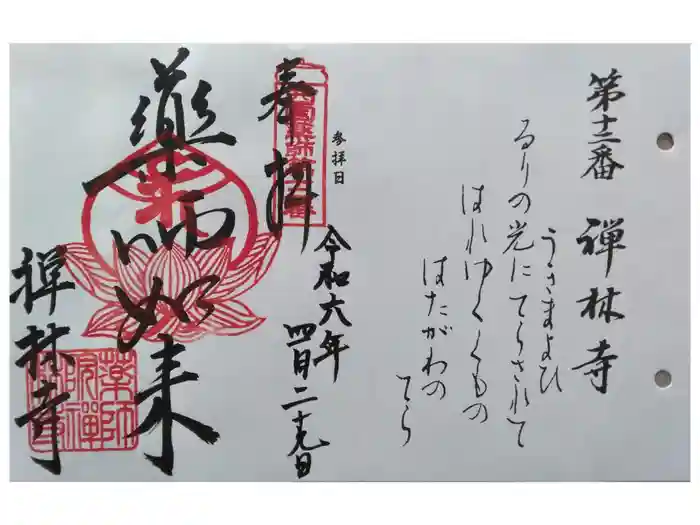 第十二番 禅林寺
るりの光にてらされて
うきまよひ
はれゆくくもの
はたがわの
てら
奉拝
参拝日
令和六年
四月二十九日
薬師如来
禅林寺